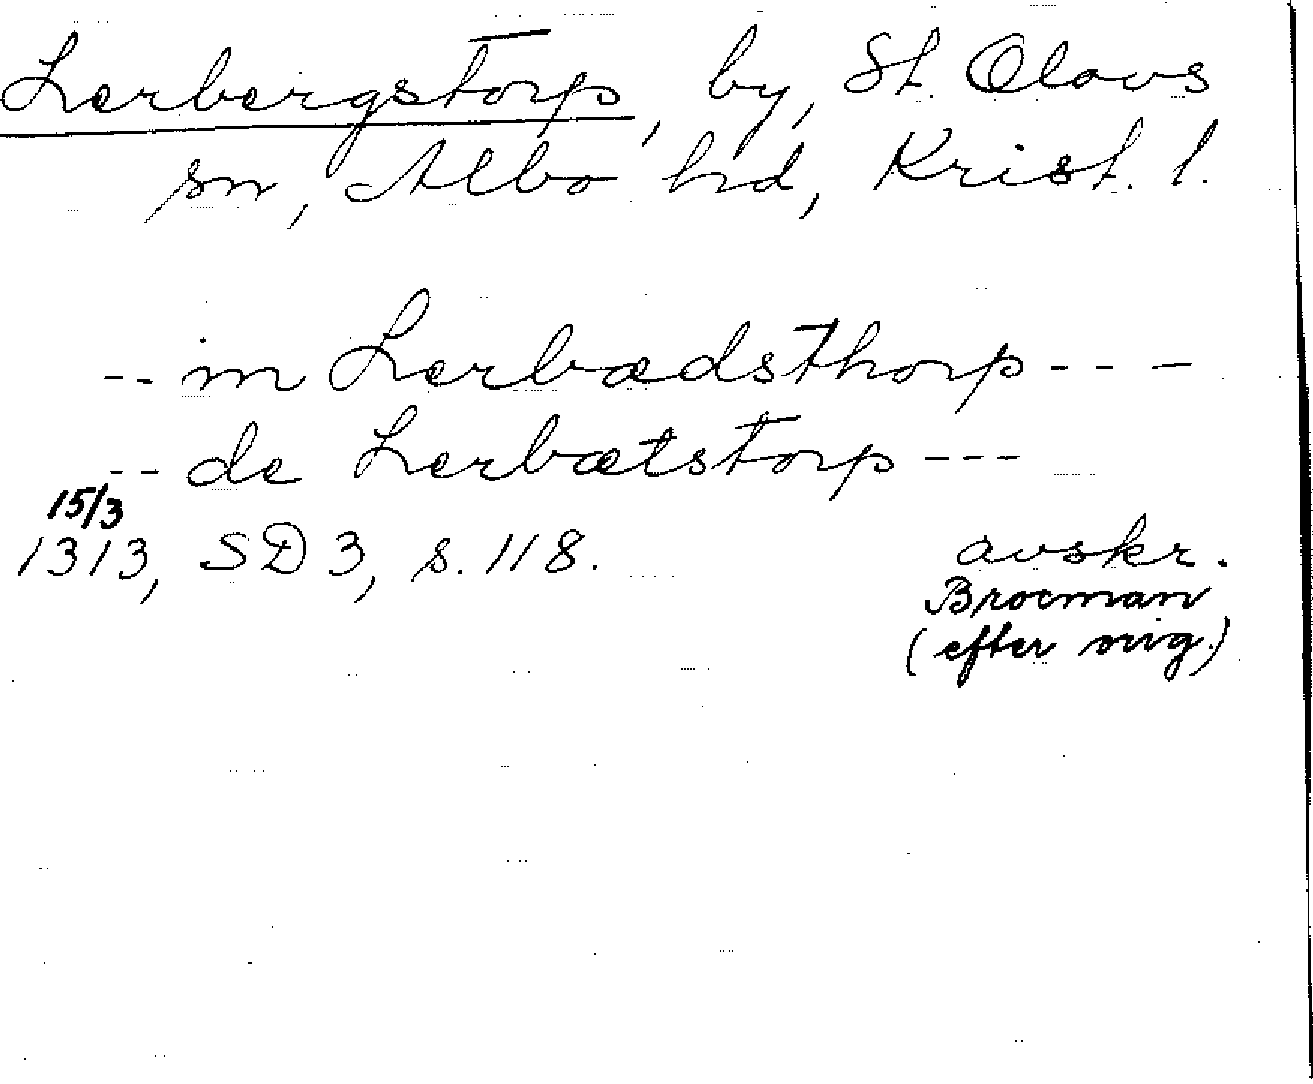 Lerbergstorp, by, St. Olovs
sn, Albo hd, Krist. l.
-- in Lerbædsthorp ---
-- de Lerbætstorp ---
15/3
1313, SD 3, s. 118.
avskr.
Brocman
(efter orig.)